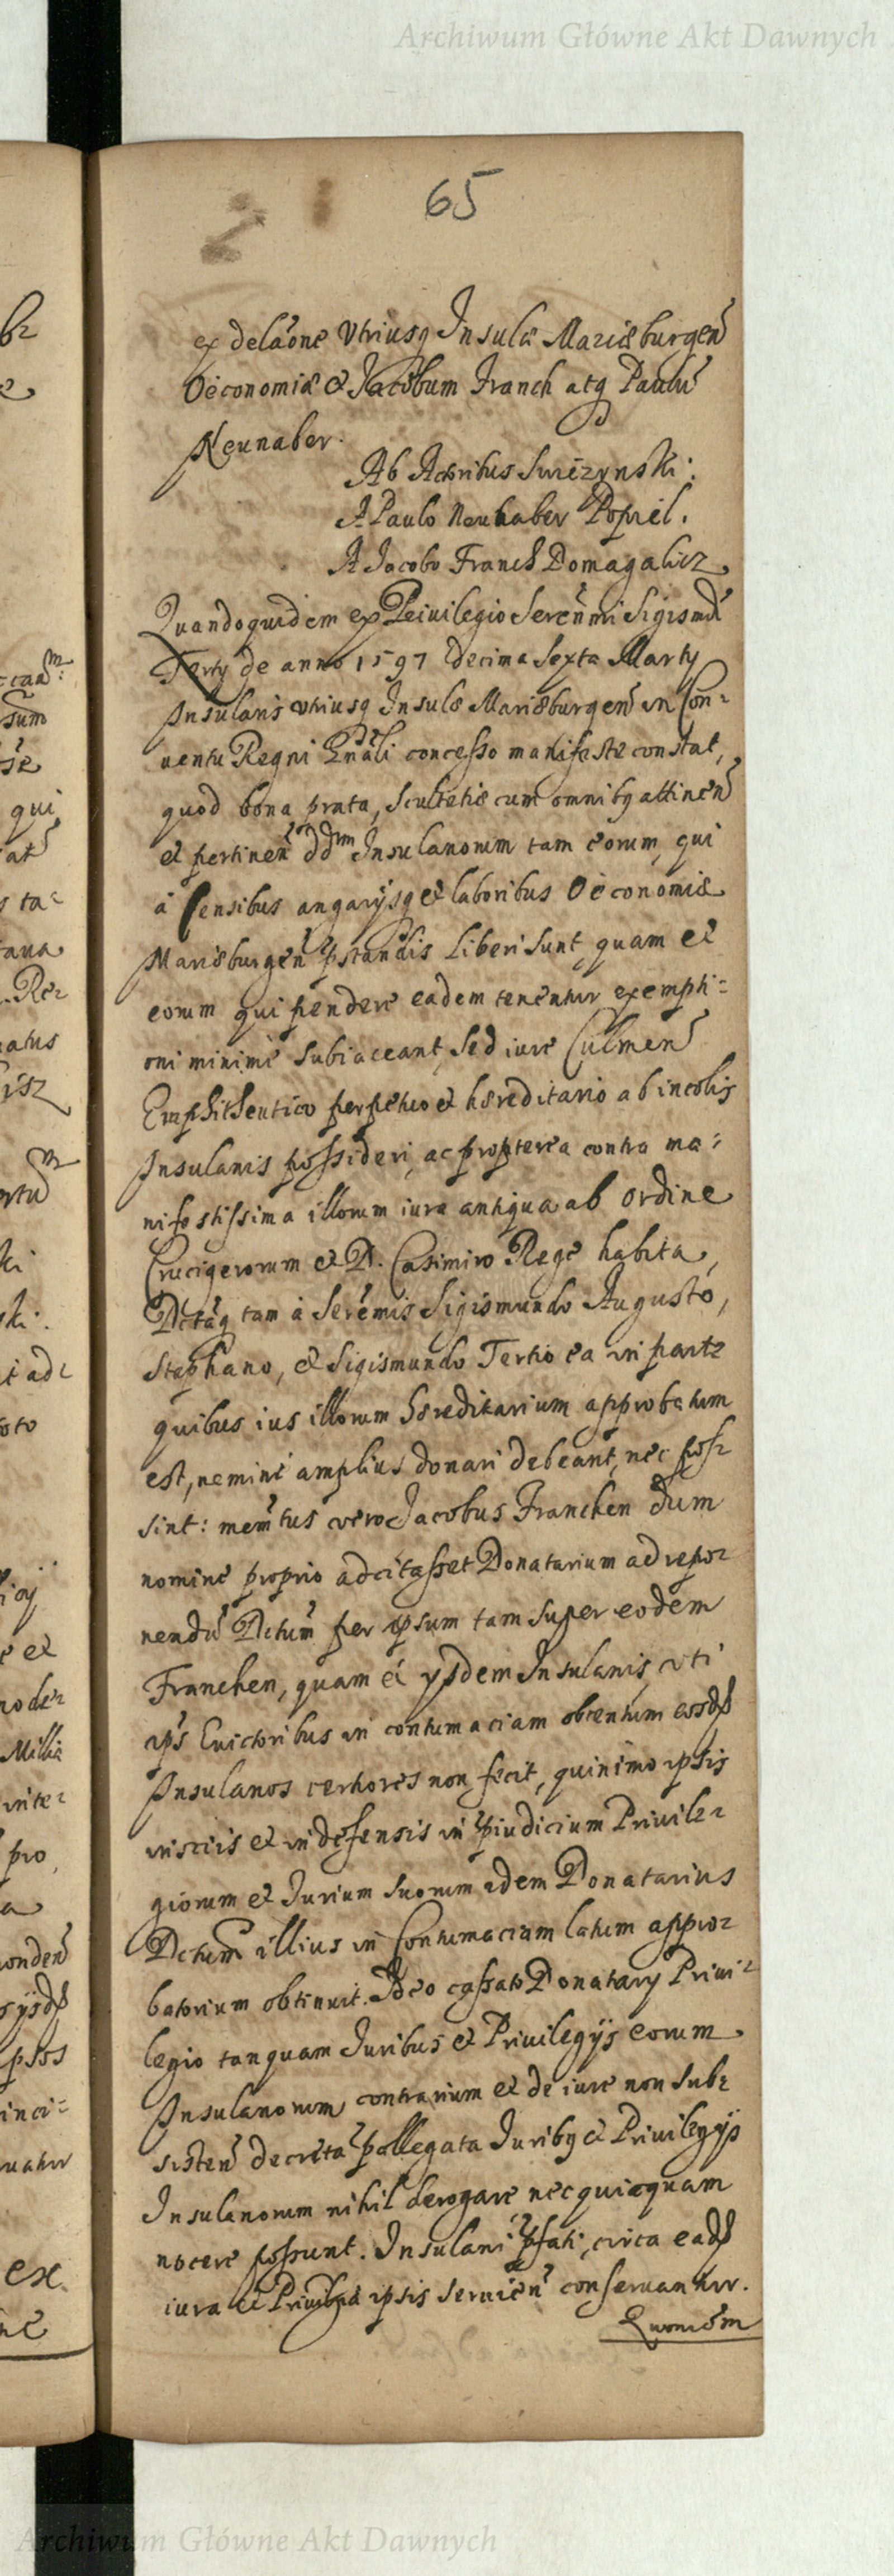 Archiwum Główne Akt Dawnych
65
ex delaõne Vtriusq Insulæ Mariæburgeñ
Oeconomiæ & Jacobum Franch atq Paulũ
Neunaber.
Ab Actoribus Swiezynski:
A Paulo Neunaber Popiel.
A Jacobo Franch Domagalicz
Quandoquidem ex Privilegio Sereñmi Sigismũ
Tertij de anno 1597 Decima Sexta Martij
Insulanis vtriusq Insulæ Mariæburgeñ in Con-
uentu Regni Gnãli concesso manifeste constat,
quod bona prata, Scultetiæ cum omnibq attineñ
et pertineñ ddrm Insulanorum tam eorum, qui
à Censibus angarijsq et laboribus Oeconomiæ
Mariæburgeñ pstandis Liberi sunt, quam et
eorum qui pendere eadem tenentur exempti-
oni minimè subiaceant, sed iure Culmeñ
Emphitheutico perpetuo et hæreditario ab incolis
Insulanis possideri, ac propterea contra ma-
nifestissima illorum iura antiqua ab ordine
Crucigerorum et D. Casimiro Rege habita,
Dctaq tam à Serẽmis Sigismundo Augusto,
Stephano, et Sigismundo Tertio ea in parte
quibus ius illorum hæreditarium approbatum
est, nemini amplius donari debeant, nec pos-
sint: memtus vero Jacobus Franchen dum
nomine proprio adcitasset Donatarium ad repo-
nendũ Dctum per ipsum tam super eodem
Franchen, quam ei ijsdem Insulanis, uti
ips Euictoribus in contumaciam obtentum eosd
Insulanos certiores non fecit, quinimo ipsis
insciis et indefensis in piudicium Priuile-
giorum et Iurium suorum idem Donatarius
Dctum illius in Contumaciam latum appro-
batorium obtinuit. Ideo cassato Donatarij Priui-
legio tanquam Iuribus et Priuilegijs eorum
Insulanorum contrarium et de iure non sub-
sisteñ decreta pallegata Iuribq et Priuilegijs
Insulanorum nihil derogare nec quicquam
nocere possunt. Insulani pfati, circa ead
iura et Priuilegia ipsis seruieñ conseruantur.
Quoniam
Archiwum Główne Akt Dawnych